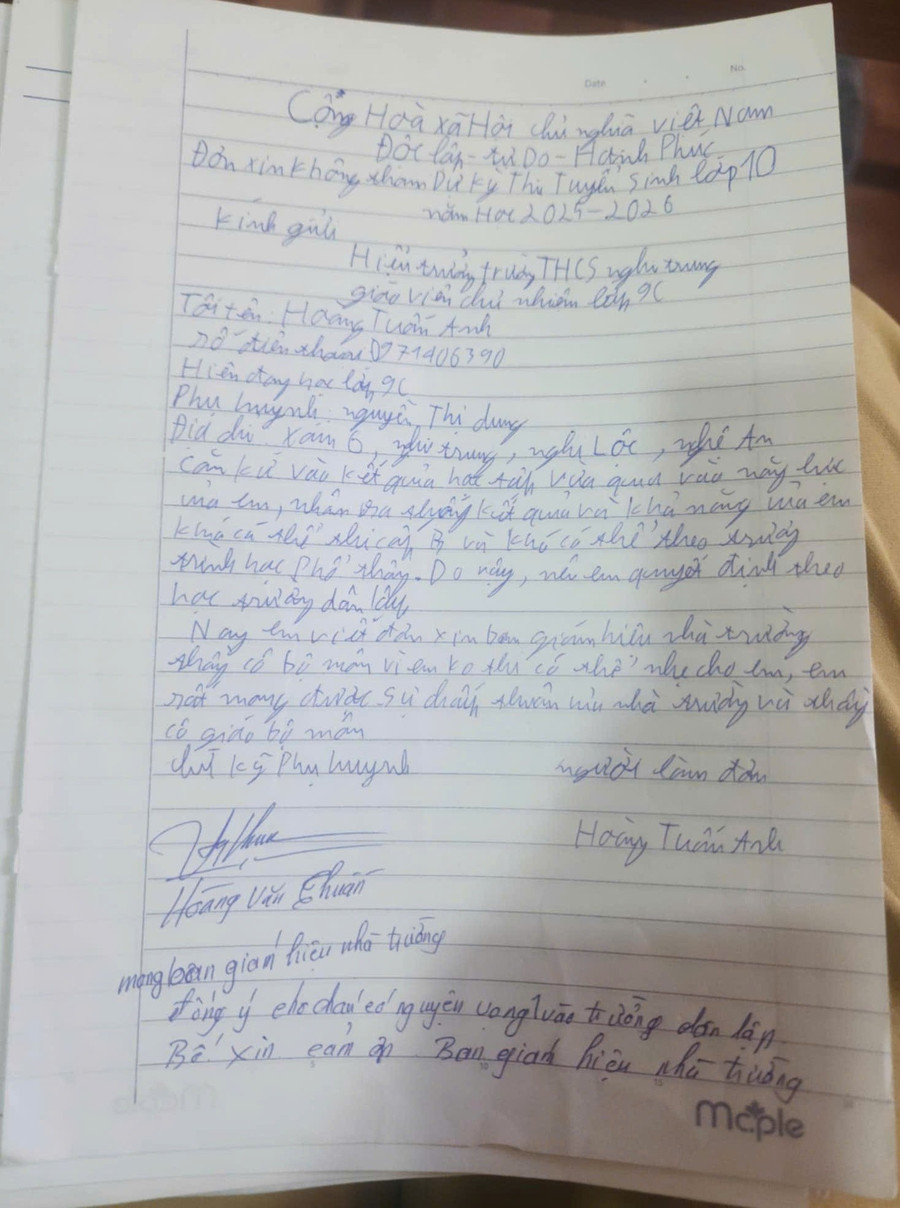 Date
No.
Cộng Hoà xã Hội chủ nghĩa việt Nam
Độc lập - tự Do - Hạnh Phúc
Đơn xin không tham Dự Kỳ Thi Tuyển Sinh lớp 10
năm Học 2025-2026
Kính gửi
Hiệu trưởng trường THCS nghi trung
giáo viên chủ nhiệm lớp 9C
Tôi tên: Hoàng Tuấn Anh
số điện thoại 0971406390
Hiện đang học lớp 9C
Phụ huynh: nguyễn Thị dung
Địa chỉ: xóm 6, nghi trung, nghi Lộc, nghệ An
căn kứ vào kết quả học tập vừa qua vào năng lực
của em, nhận ra thấy kết quả và khả năng của em
khó có thể thi cấp 3 và khó có thể theo trương
trình học phổ thông. Do vậy, nên em quyết định theo
học trường dân lập
Nay em viết đơn xin ban giám hiệu nhà trường
thầy cô bộ môn vì em ko thi có thể nhẹ cho em, em
rất mong được sự chấp thuận của nhà trường và thầy
cô giáo bộ môn
chữ ký Phụ huynh người làm đơn
Hoàng Tuấn Anh
Hoàng Văn Chuẩn
mong ban giám hiệu nhà trường
đồng ý cho cháu có nguyện vọng 1 vào trường dân lập
Bố xin cảm ơn Ban giám hiệu nhà trường
maple